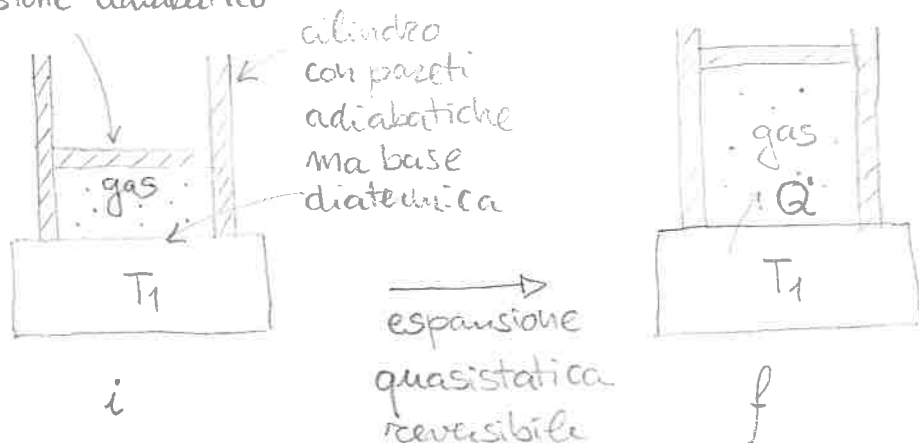 adiabatico
cilindro
con pareti
adiabatiche
ma base
diatermica
gas
T1
i
espansione
quasistatica
reversibile
gas
Q
T1
f